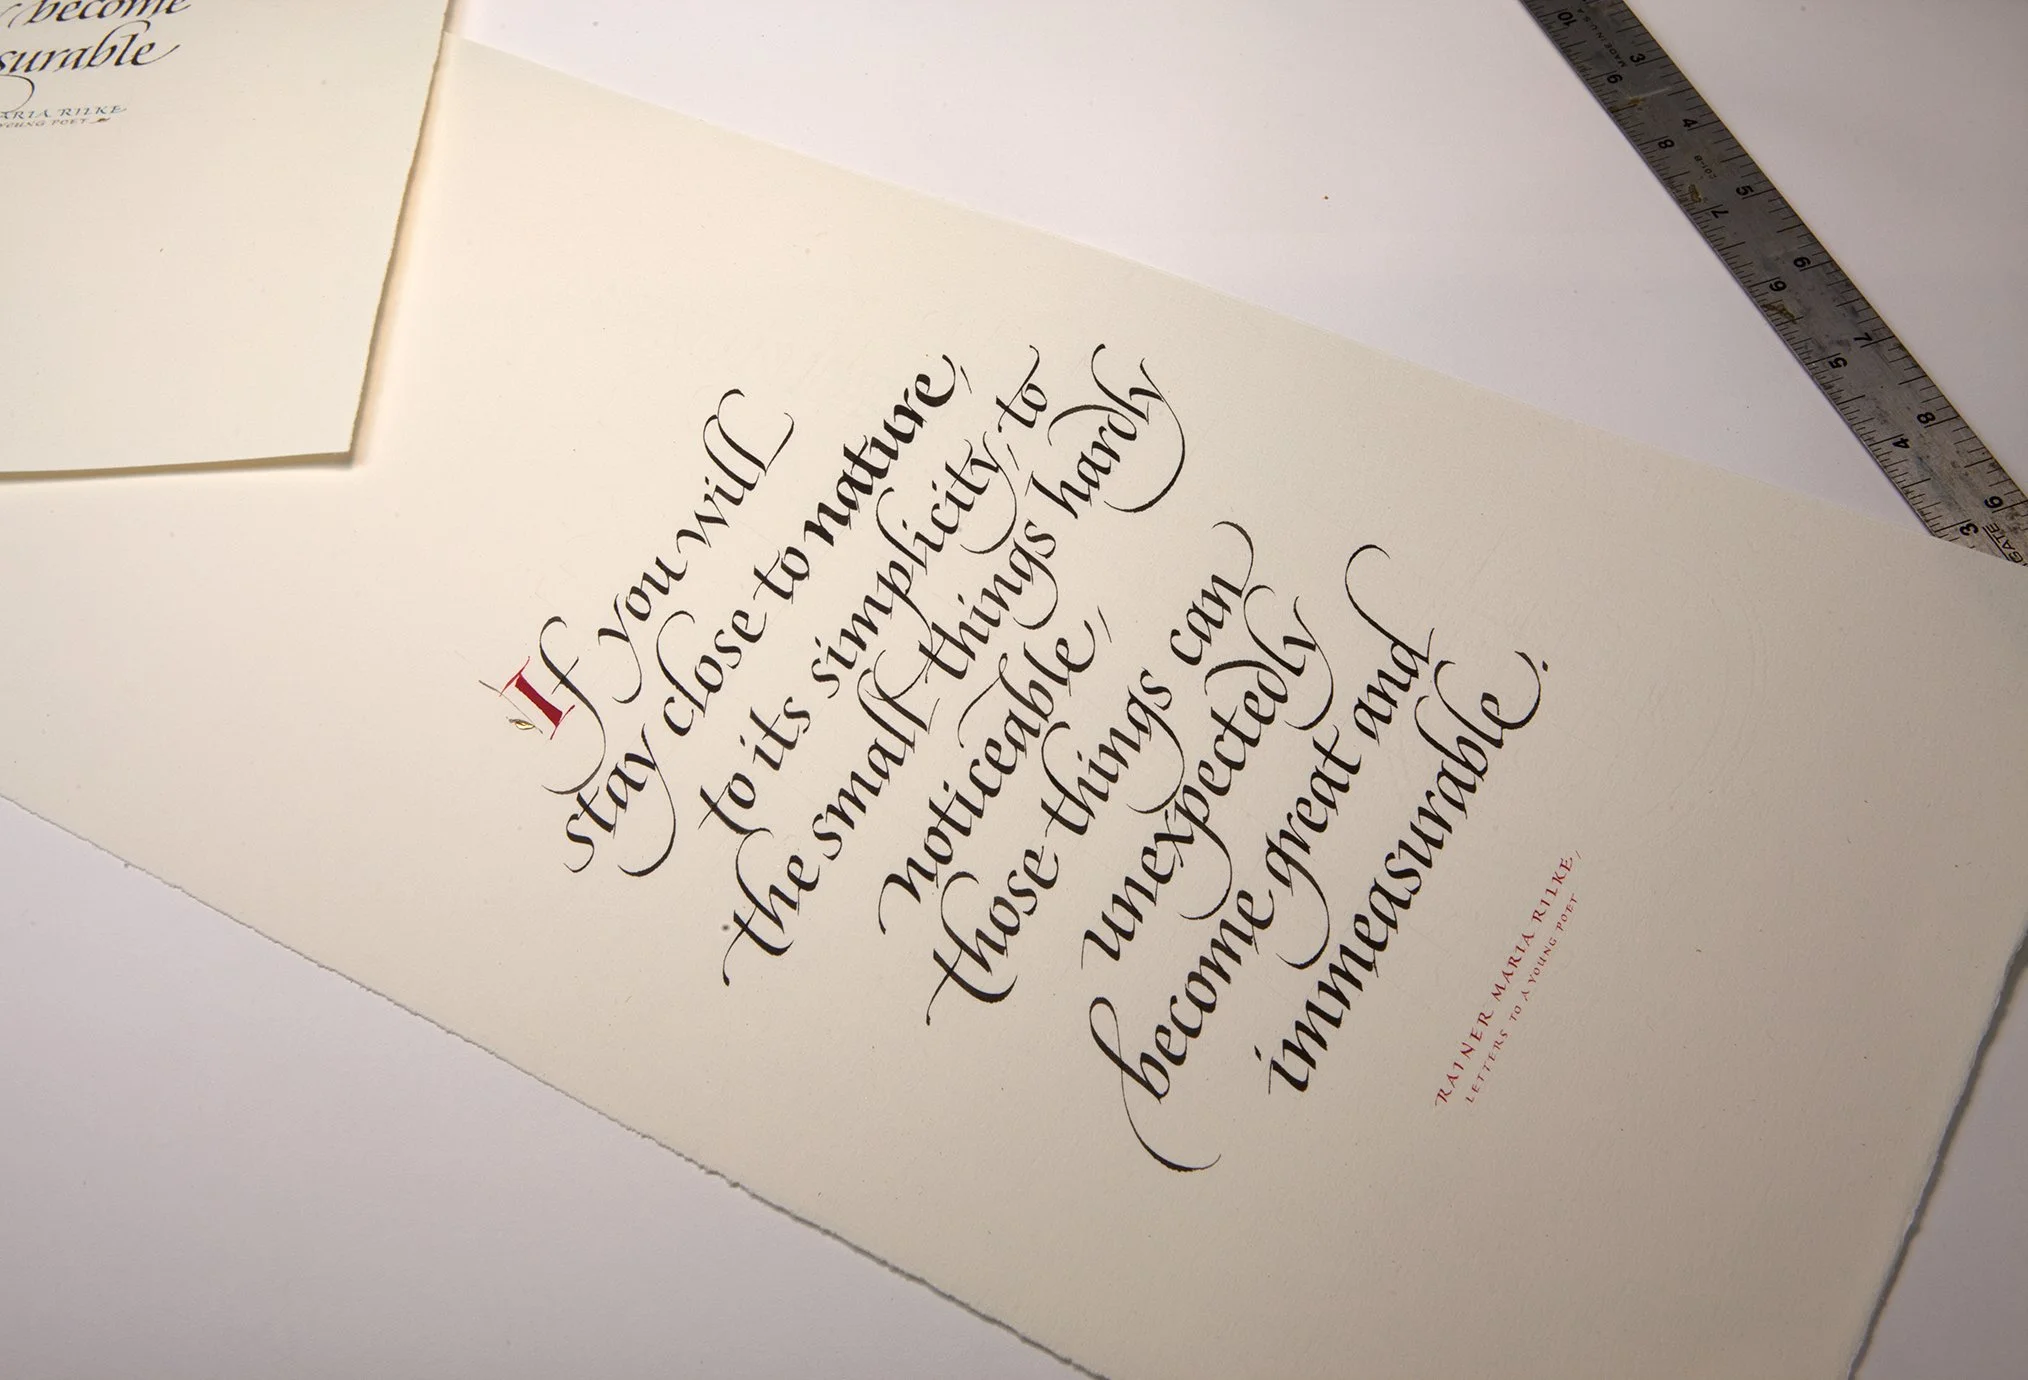 become
surable
ARIA RILKE
YOUNG POET
If you will
stay close to nature,
to its simplicity, to
the small things hardly
noticeable,
those things can
unexpectedly
become great and
immeasurable.
RAINER MARIA RILKE,
LETTERS TO A YOUNG POET
10 MADE IN U.S.A. 3
9 4
8 5
7 6
6 7
5 8
4 9
3 GATE